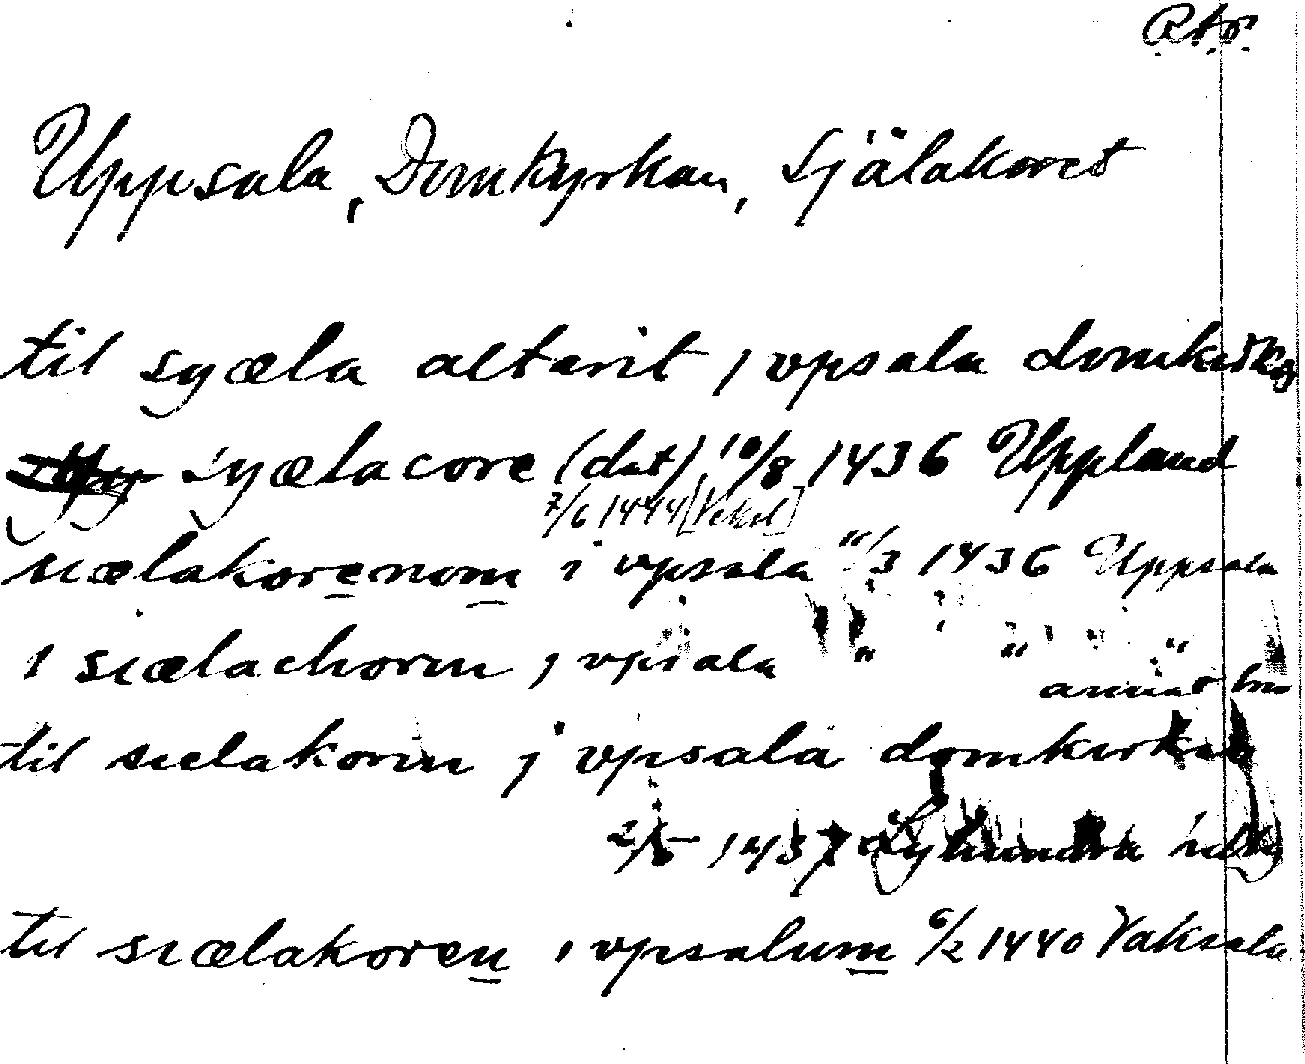 Uppsala, Domkyrkan, Själakoret
til syæla altarit j vpsala domkirkio
syælacore (dat) 10/8 1436 Uppland
7/6 1444
siælakorenom i vpsala 11/3 1436 Uppsala
i siælachorin j vpsala " " "
annat br
til sielakorin j vpsala domkirkio
2/5 1437 Lyhundra
til siælakoren i vpsalum 6/2 1440 Vaksala